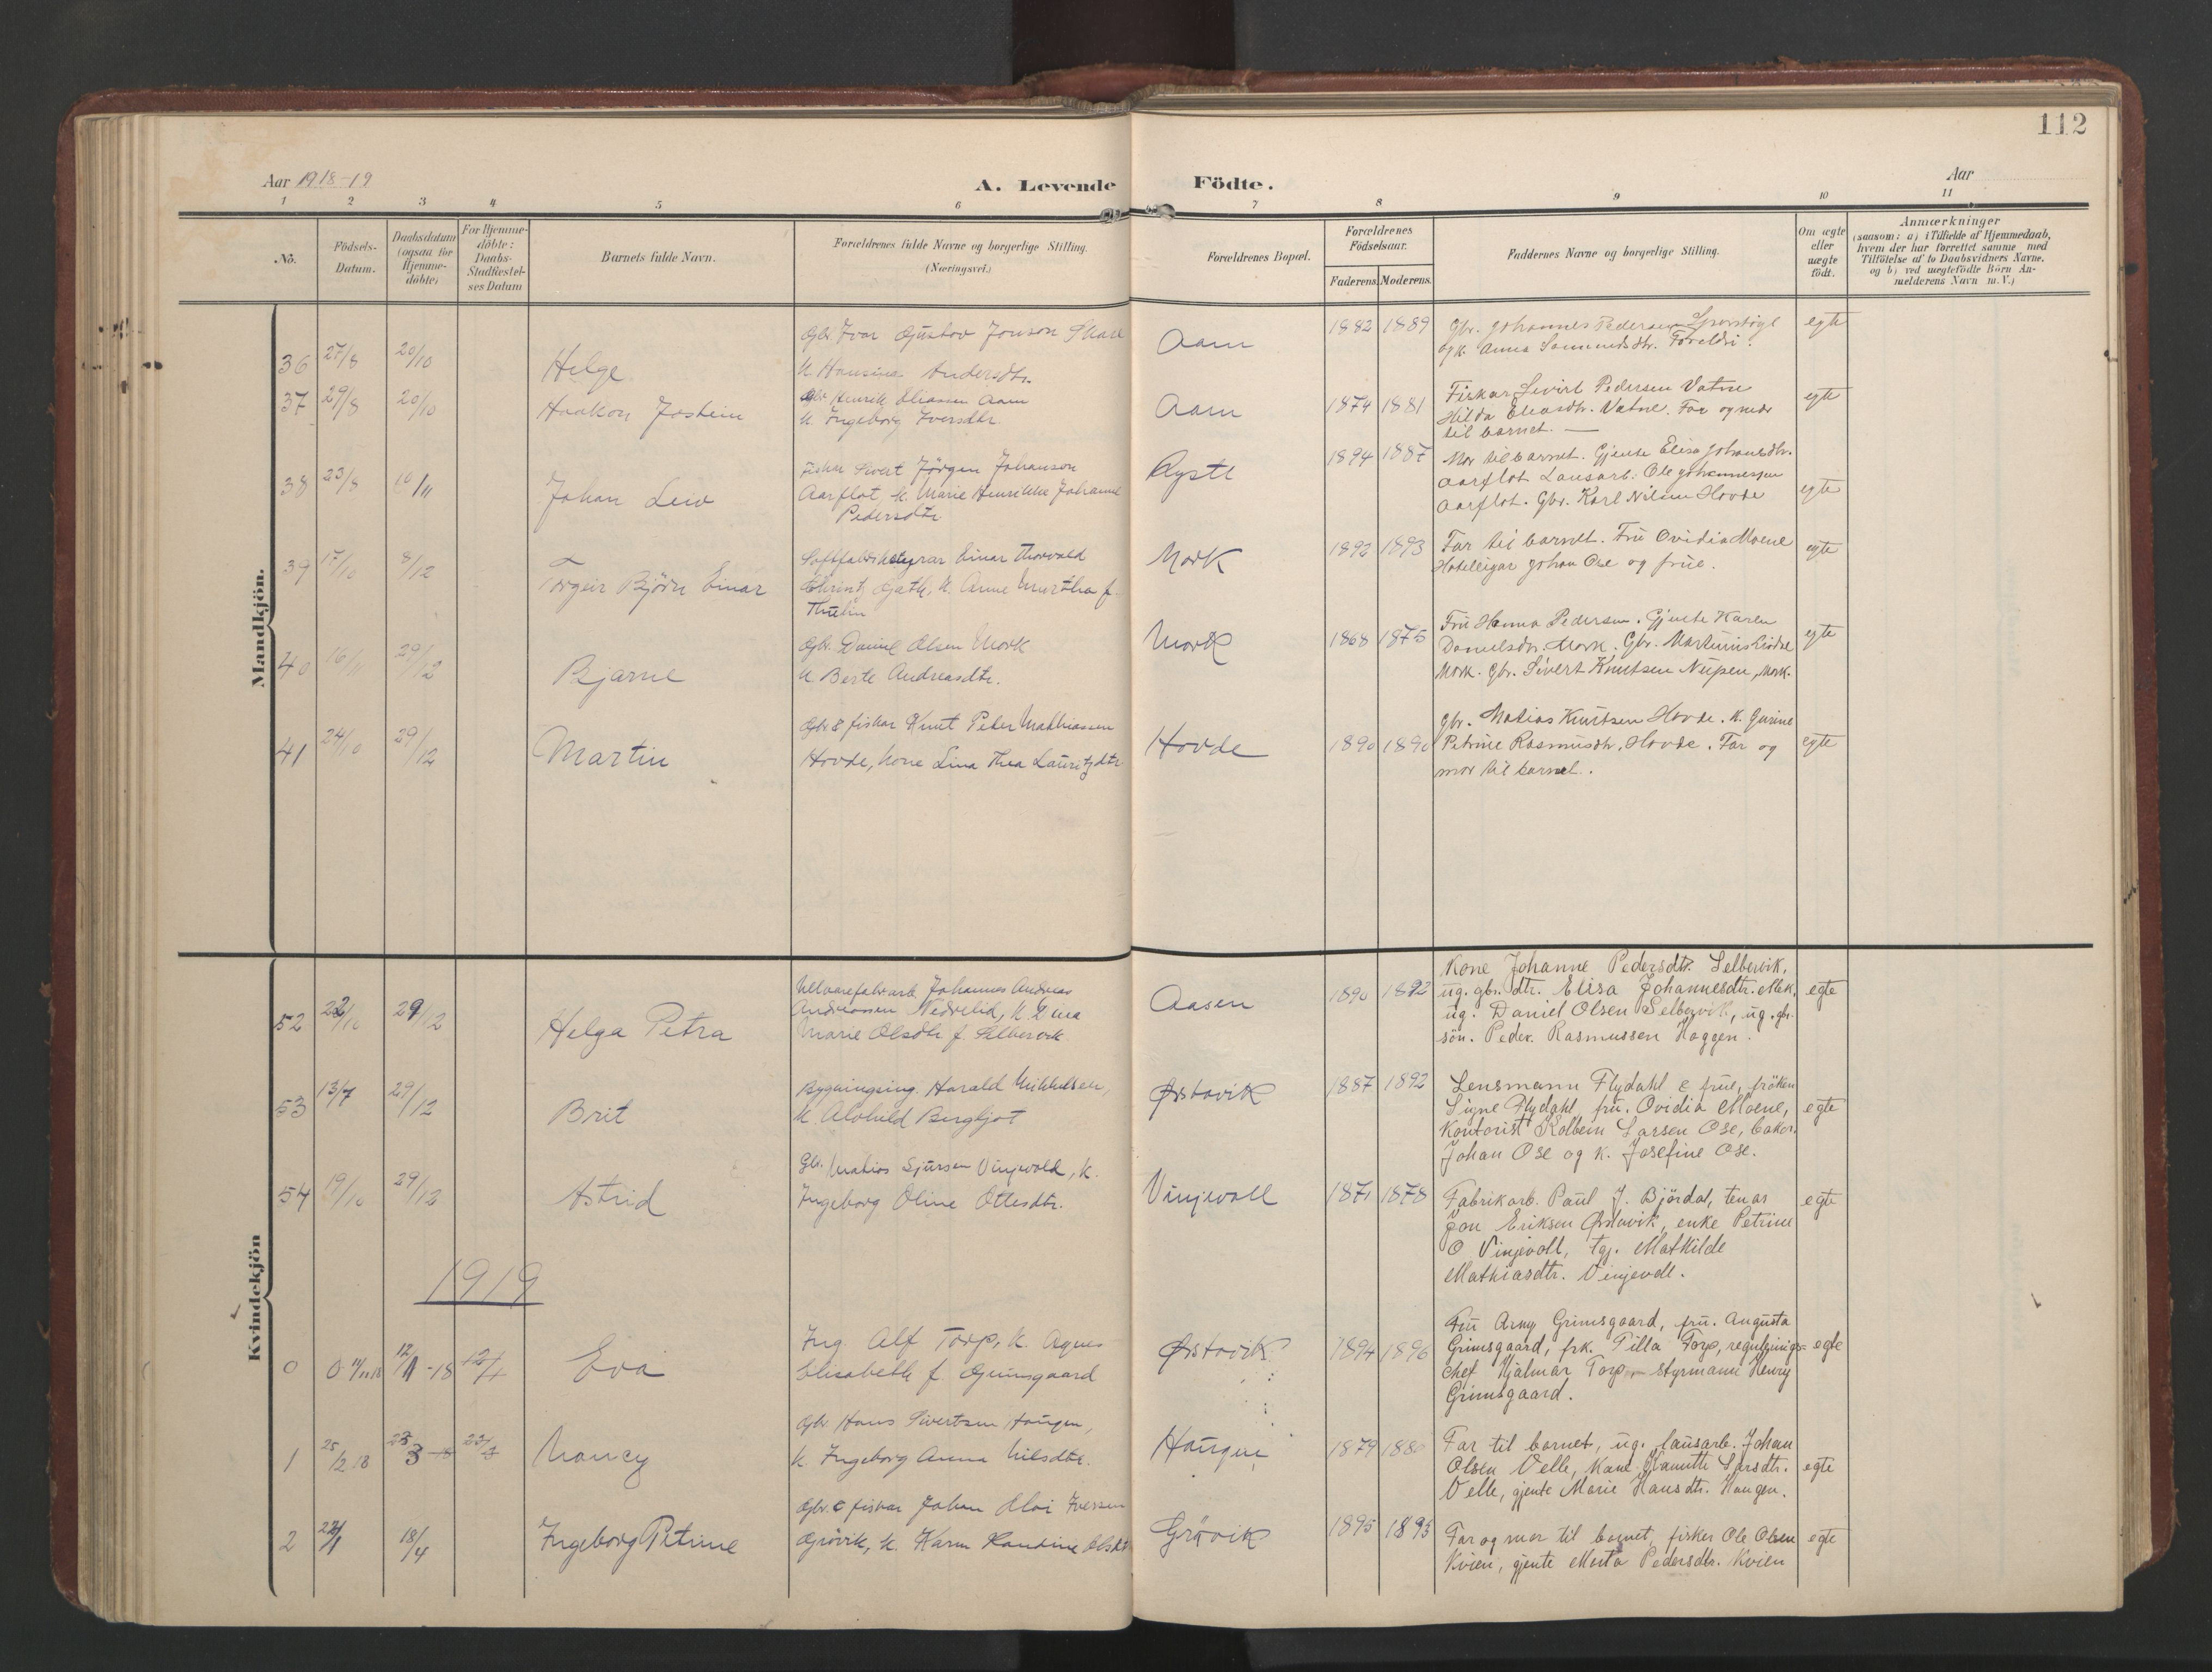 112
Aar 1918-19
A. Levende Födte.
Aar
1 2 3 4 5 6 7 8 9 10 11
No.
Födsels-
Datum.
Daabsdatum
(ogsaa for
Hjemme-
döbte)
For Hjemme-
döbte:
Daabs-
Stadfæstel-
ses Datum
Barnets fulde Navn.
Forældrenes fulde Navne og borgerlige Stilling.
(Næringsvei.)
Forældrenes Bopæl.
Forældrenes
Födselsaar.
Faderens. Moderens.
Faddernes Navne og borgerlige Stilling.
Om ægte
eller
uægte
födt.
Anmærkninger
(saasom: a) i Tilfælde af Hjemmedaab,
hvem der har forrettet samme med
Tilföielse af to Daabsvidners Navne,
og b) ved uægtefödte Börn An-
melderens Navn m.V.)
Mandkjön.
36 27/8 20/10 Helge
Gbr. Ivar Gustav Jonson
k Hansine Andersdtr.
Aam 1882 1889
Gbr. Johannes Pedersen
og k. Anna Foreldri.
egte
37 29/8 20/10 Haakon Jostein
Gbr Henrik Eliassen Aam
k. Ingeborg Iversdtr.
Aam 1874 1881
Fiskar Sivert Pedersen Vatne
Hilda Eliasdtr. Vatne. Far og mor
til barnet. —
egte
38 23/8 10/11 Johan Leiv
Fisker Sivert Jörgen Johanson
Aarflot k. Marie Henrikke Johanne
Pedersdtr
1894 1887
Mor til barnet. Gjente Elisa Johansdtr.
Aarflot Lausarb. Ole Johannessen
Aarflot. Gbr. Karl Nilsen Hovde
egte
39 17/10 8/12 Torgeir Björn Einar
Einar Thorvald
k. Anne Martha f.
Thulin
Mork 1892 1893
Far til barnet. Frü Ovidia Moene
Hotelleigar Johan Ose og früe.
egte
40 16/11 29/12 Bjarne
Gbr. Daniel Olsen Mork
k Berte Andreasdtr.
Mork 1868 1875
Frü Hanna Pedersen. Gjente Karen
Danielsdtr. Mork. Gbr. Martinus
Mork. Gbr. Sivert Knutsen Nupen, Mork.
egte
41 24/10 29/12 Martin
Gbr & fiskar Knut Peter Mathiassen
Hovde, kone Lina Thea Lauritzdtr
Hovde 1890 1890
Gbr. Matias Knutsen Hovde. k. Gurine
Petrine Rasmusdtr. Hovde. Far og
mor til barnet.
egte
Kvindekjön
52 22/10 29/12 Helga Petra
Johannes Andreas
Andreassen Nedrelid, k.
Marie Olsdtr f. Selbervik
Aasen 1890 1892
Kone Johanne Pedersdtr. Selbervik,
ug. gbr. dtr. Elisa Johannesdtr. Mek,
ug. Daniel Olsen Selbervik, ug. gbr.
sön. Peder Rasmussen Haggen.
egte
53 13/7 29/12 Brit
Bygningsing. Harald Mikkelsen,
k. Alvhild Bergljot
Ørstavik 1887 1892
Lensmann Flydahl & früe, fröken
Signe Flydahl, frü. Ovidia Moene,
Kontorist Kolbein Larsen Ose, bakar
Johan Ose og k. Josefine Ose.
egte
54 19/10 29/12 Astrid
Gbr. Matias Sjursen Vinjevold, k.
Ingeborg Oline Ottesdtr.
Vinjevoll 1871 1878
Fabrikarb. Paul J. Björdal, tenar
Jon Eriksen Ørstavik, enke Petrine
O Vinjevoll, tgj. Mathilde
Mathiasdtr. Vinjevoll.
egte
1919
0 12/11 -18 12/4 Eva
Ing. Alf Torp, k. Agnes
Elisabeth f. Grimsgaard
Ørstavik 1894 1896
Frü Army Grimsgaard, frü. Augusta
Grimsgaard, frk. Tilla Torp, regulerings-
chef Hjalmar Torp, styrmann Henry
Grimsgaard.
egte
1 25/2 18 23/3 23/3 Nancy
Gbr. Hans Sivertsen Haugen,
k. Ingeborg Anna Nilsdtr.
Haugen 1879 1880
Far til barnet, ug. lausarb. Johan
Olsen Velle, Kone Larsdtr.
Velle, gjente Marie Hansdtr. Haugen.
egte
2 22/1 18/4 Ingeborg Petrine
Gbr. & fiskar Johan Iversen
Grövik, k. Karen Olsdtr
Grövik 1895 1895
Far og mor til barnet, fisker Ole Olsen
Kvien, gjente Marta Pedersdtr. Kvien
egte